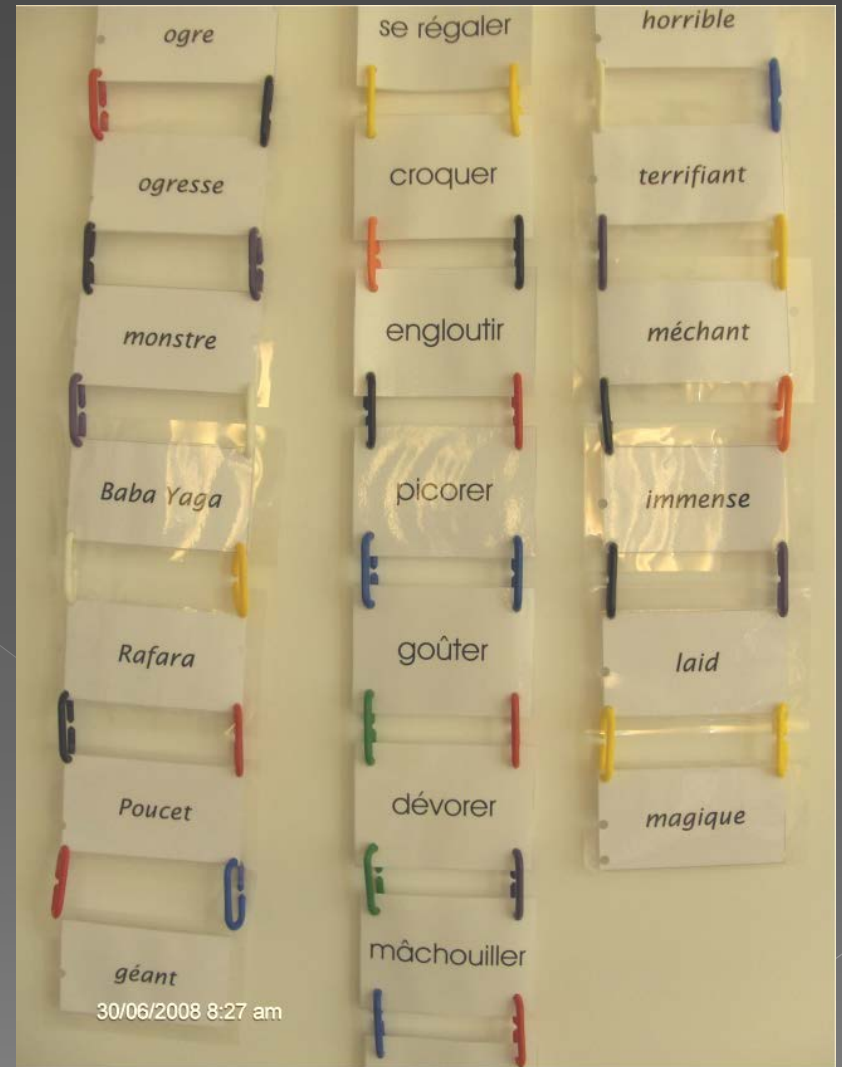 ogre
ogresse
monstre
Baba Yaga
Rafara
Poucet
géant
se régaler
croquer
engloutir
picorer
goûter
dévorer
mâchouiller
horrible
terrifiant
méchant
immense
laid
magique
30/06/2008 8:27 am